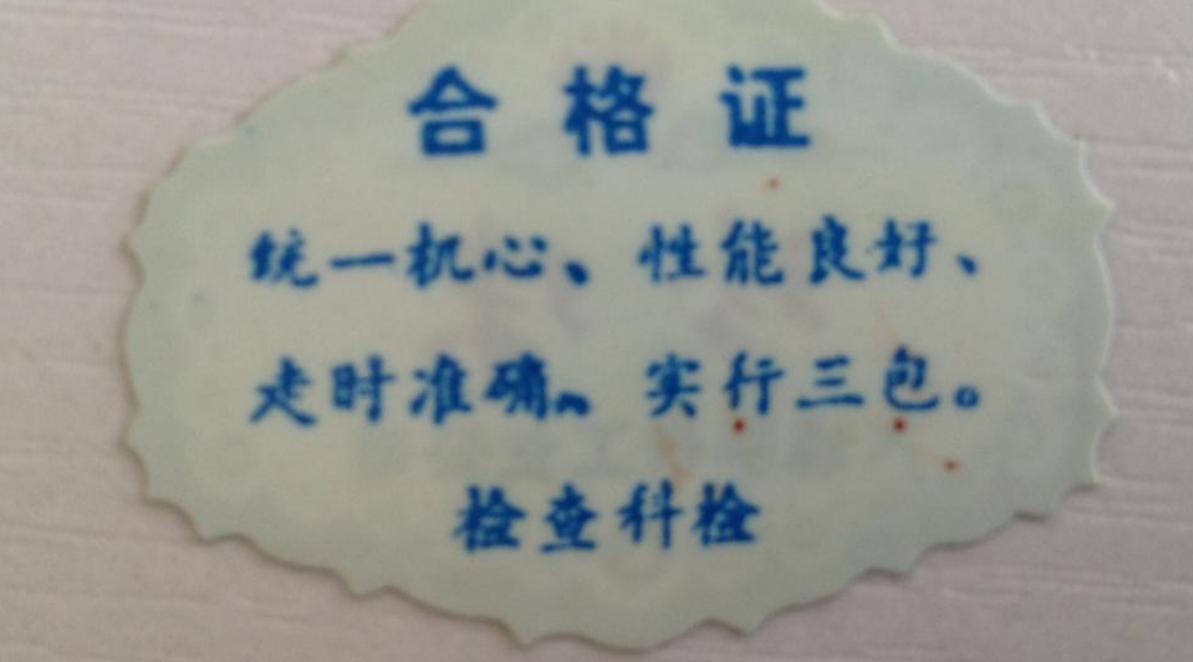 合格证
统一机心、性能良好、
走时准确、实行三包。
检查科检